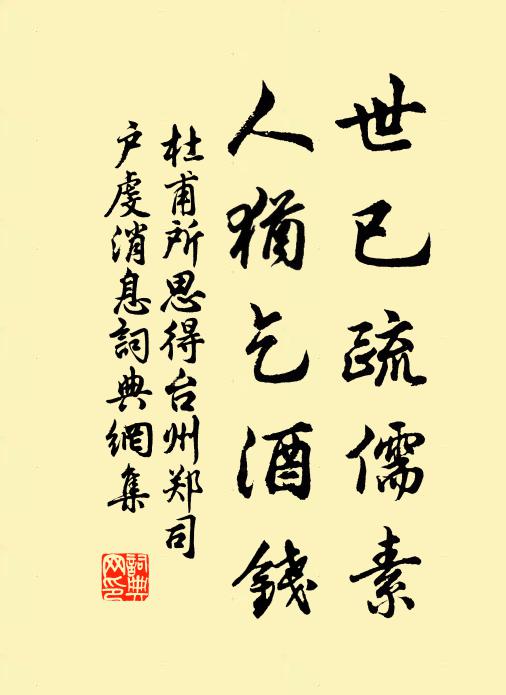 世已疏儒素
人犹乞酒钱
杜甫所思得台州郑司
户虔消息詞典網集
詞典
网印